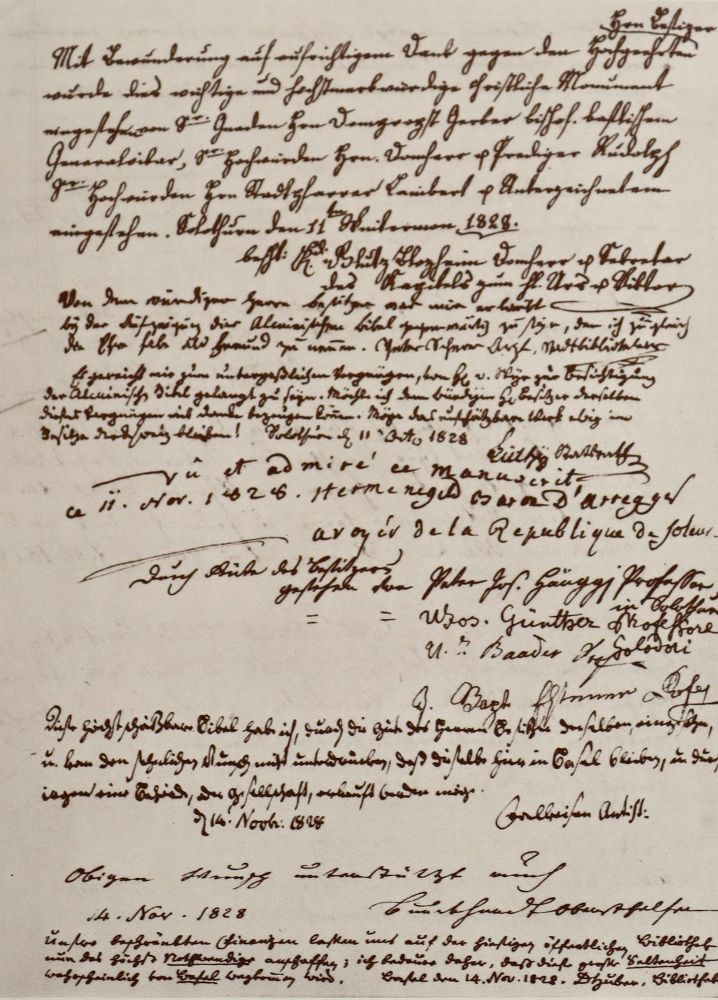 Hrn Besitzer
Mit Bewunderung und aufrichtigem Dank gegen den Hochgeehrten
wurde dies wichtige und höchstmerkwürdige christliche Monument
eingesehen von Sr. Gnaden Hrn Domprobst Gerber bischöf.
Generalvikar, Sr. Hochwürden Hrn. Domherr u Prediger Rudolf
Sr. Hochwürden Hrn Stadtpfarrer Lambert u Unterzeichnetem
eingesehen. Solothurn den 11ten Wintermon. 1828.
Glutz Blozheim Domherr u Sekretar
des Kapitels zum hl. Urs u Viktor
Von dem würdigen Herrn Besitzer war mir erlaubt
bey der Aufzeigung der Alcuinischen Bibel gegenwärtig zu seyn, den ich zugleich
die Ehre habe als Freund zu nennen. Peter Scherer Arzt, Stadtbibliothekar
Es gereicht mir zum unvergeßlichen Vergnügen, von H. v. Speyr zur Besichtigung
der Alcuinisch. Bibel gelangt zu seyn. Möchte ich dem würdigen H. Besitzer derselben
dieses Vergnügen mit Danke bezeugen können. Möge das unschätzbare Werk ewig im
Besitze der Schweiz bleiben! Solothurn d. 11 1828
Lüthy Rathsh.
vû et admiré ce manuscrit
ce 11. Nov. 1828. Hermenegild Baron D'arregger
avoyer de la Republique de Soleur.
Durch Güte des Besitzers
gesehen von Peter Jos. Hänggi Professor
in Solothurn
= = Urs Jos. Günther Professore
U. Baader Solodori
J. Bapt Prof.
Diese höchst schäzbare Bibel hab ich, durch die Güte des Herrn Besitzers derselben, eingesehen,
u. kan den sehnlichen Wunsch nicht unterdrücken, daß dieselbe hier in Basel bleiben, u. durch
irgend eine Behörde, oder Gesellschaft, erkauft werden möge.
d. 14. Novbr. 1828 Falkeisen Antist:
Obigen Wunsch unterstützt auch
14. Nov. 1828 Burckhardt Obersthelfer
Unsre beschränkten Finanzen lassen uns auf der hiesigen öffentlichen Bibliothek
nun das höchst Nothwendige anschaffen; ich bedaure daher, daß diese große Seltenheit
wahrscheinlich von Basel wegkommen wird. Basel den 14. Nov. 1828. D Huber, Bibliothek.